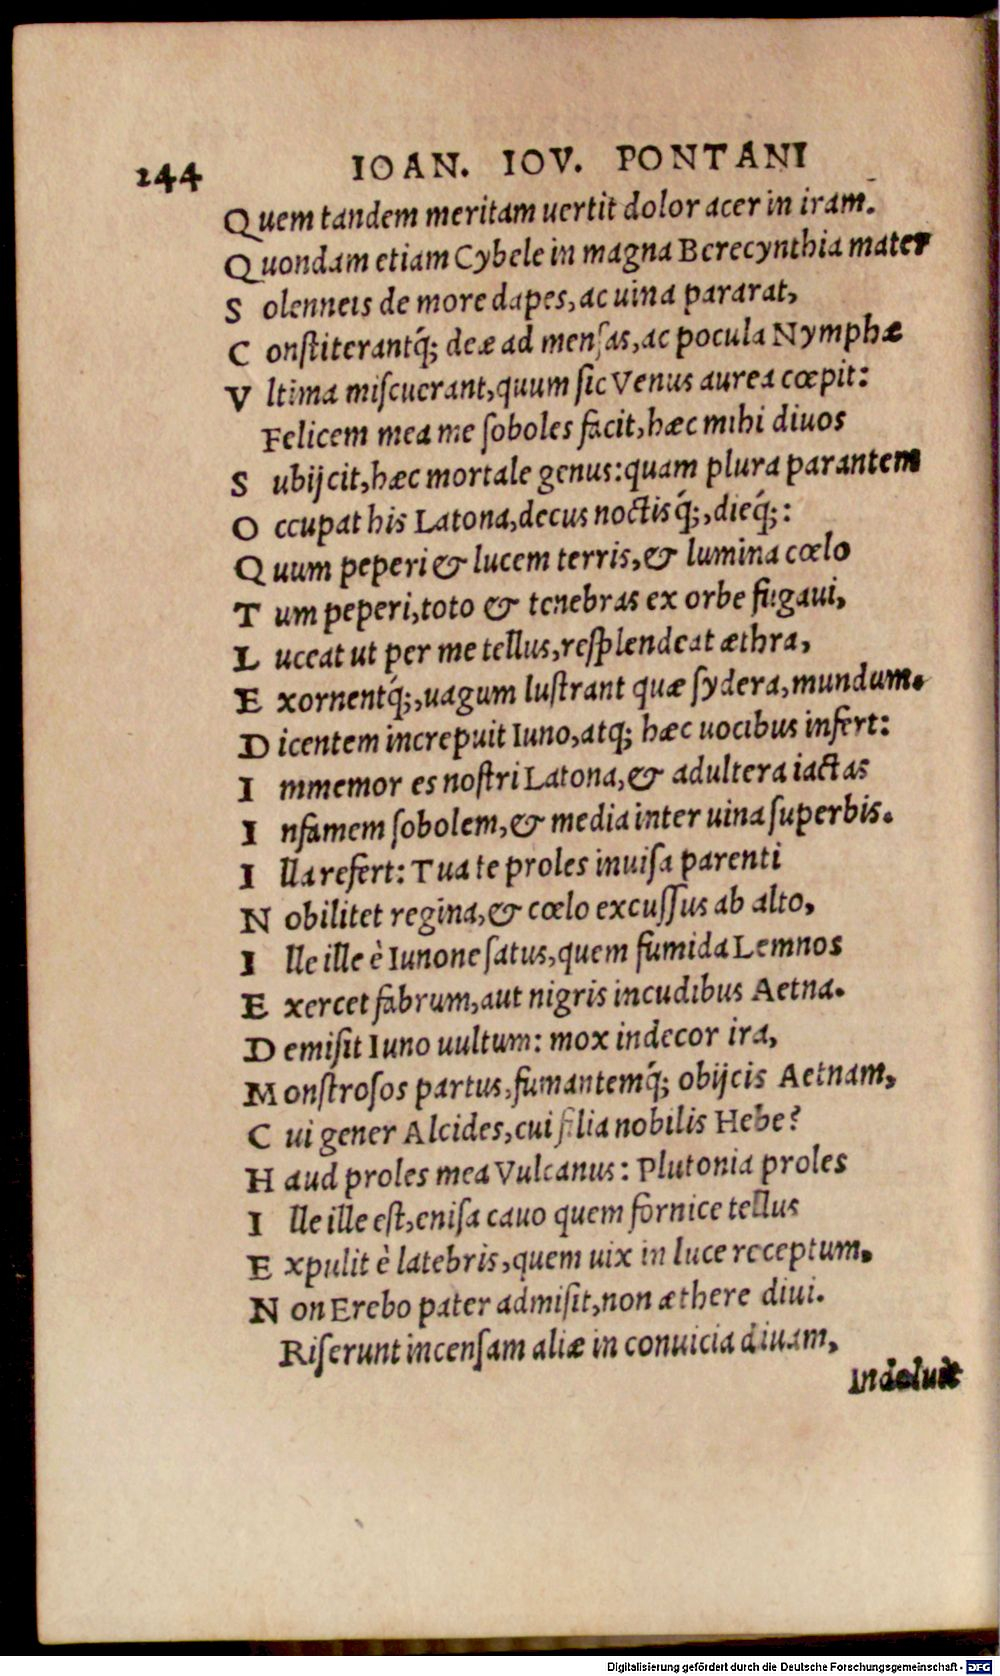 244 IOAN. IOV. PONTANI
Quem tandem meritam uertit dolor acer in iram.
Quondam etiam Cybele in magna Berecynthia mater
Solenneis de more dapes, ac uina pararat,
Constiterantq́; deæ ad menſas, ac pocula Nymphæ
Vltima miſcuerant, quum ſic Venus aurea cœpit:
Felicem mea me ſoboles facit, hæc mihi diuos
Subijcit, hæc mortale genus: quam plura parantem
Occupat his Latona, decus noctisq́;, dieq́;:
Quum peperi & lucem terris, & lumina cœlo
Tum peperi, toto & tenebras ex orbe fugaui,
Luceat ut per me tellus, reſplendeat æthra,
Exornentq́;, uagum luſtrant quæ ſydera, mundum.
Dicentem increpuit Iuno, atq; hæc uocibus infert:
Immemor es noſtri Latona, & adultera iactas
Infamem ſobolem, & media inter uina ſuperbis.
Illa refert: Tua te proles inuiſa parenti
Nobilitet regina, & cœlo excuſſus ab alto,
Ille ille è Iunone ſatus, quem fumida Lemnos
Exercet fabrum, aut nigris incudibus Aetna.
Demiſit Iuno uultum: mox indecor ira,
Monſtroſos partus, fumantemq́; obijcis Aetnam,
Cui gener Alcides, cui filia nobilis Hebe?
Haud proles mea Vulcanus: Plutonia proles
Ille ille eſt, eniſa cauo quem fornice tellus
Expulit è latebris, quem uix in luce receptum,
Non Erebo pater admiſit, non æthere diui.
Riſerunt incenſam aliæ in conuicia diuam,
Indoluit
Digitalisierung gefördert durch die Deutsche Forschungsgemeinschaft - DFG